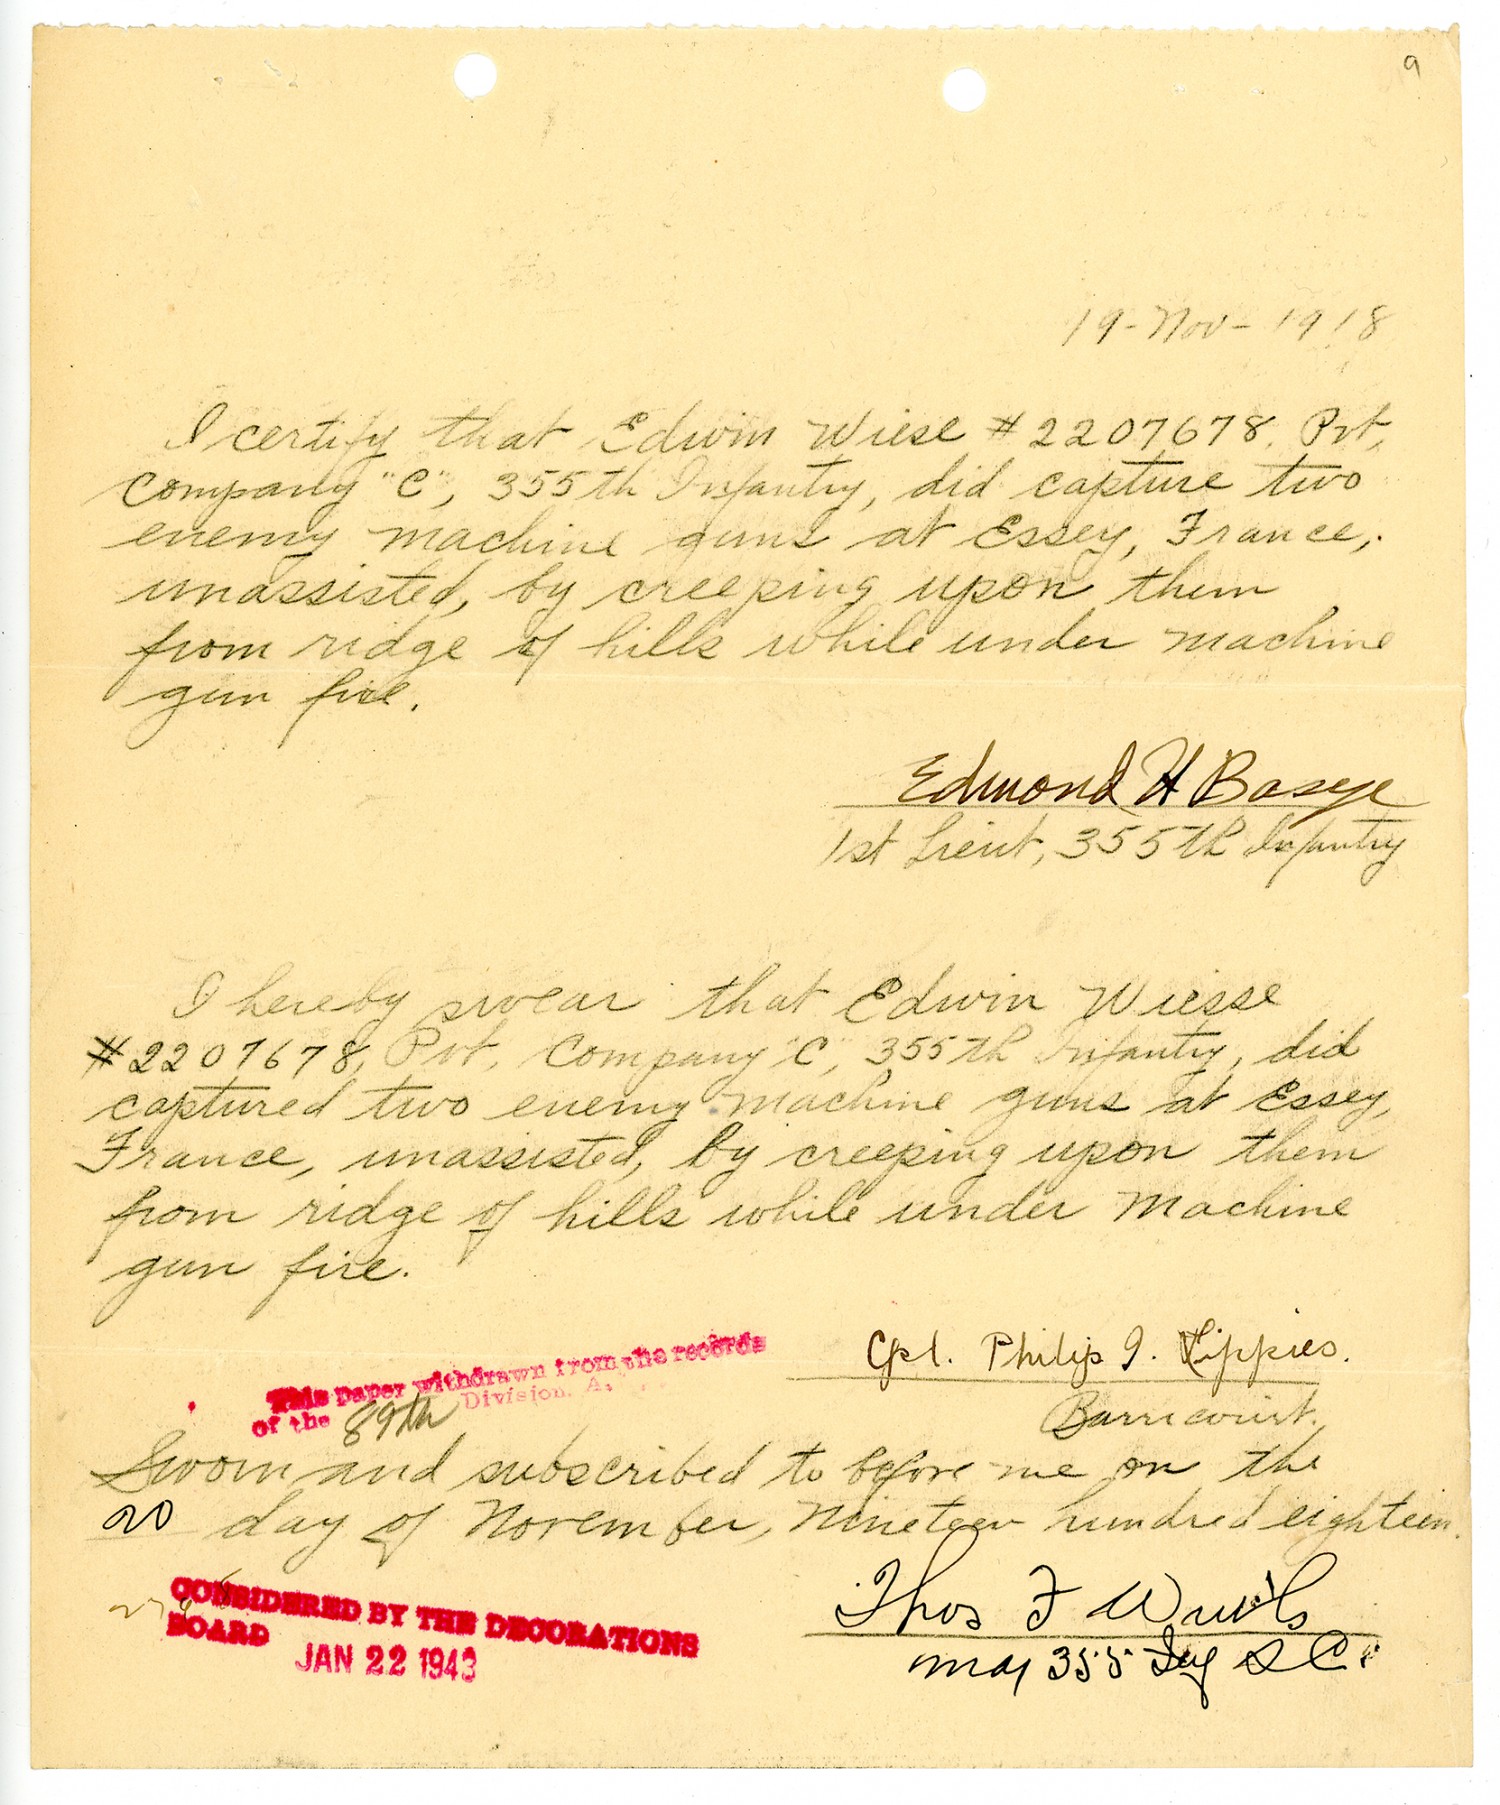 9
19-Nov-1918
I certify that Edwin Wiese #2207678, Pvt,
Company "C", 355th Infantry, did capture two
enemy machine guns at Essey, France,
unassisted, by creeping upon them
from ridge of hills while under machine
gun fire.
Edmond H Basye
1st Lieut, 355th Infantry
I hereby swear that Edwin Wiesse
#2207678, Pvt, Company "C", 355th Infantry, did
captured two enemy machine guns at Essey,
France, unassisted, by creeping upon them
from ridge of hills while under machine
gun fire.
Cpl. Philip I. Lippies.
Barricourt.
This paper withdrawn from the records
of the 89th Division, A.
Sworn and subscribed to before me on the
20 day of November, Nineteen hundred eighteen.
CONSIDERED BY THE DECORATIONS
BOARD JAN 22 1943
Thos F
Maj 355 Inf